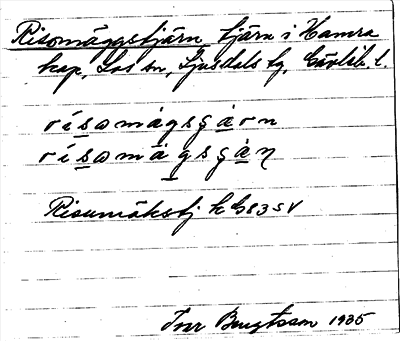 Risomäggstjärn tjärn i Hamra
kap, Los sn, Ljusdals tg, Gävleb. l.
risomägsgärn
risomägsgän
Risumäkstj k G83 SV
Ivar Bengtsson 1935